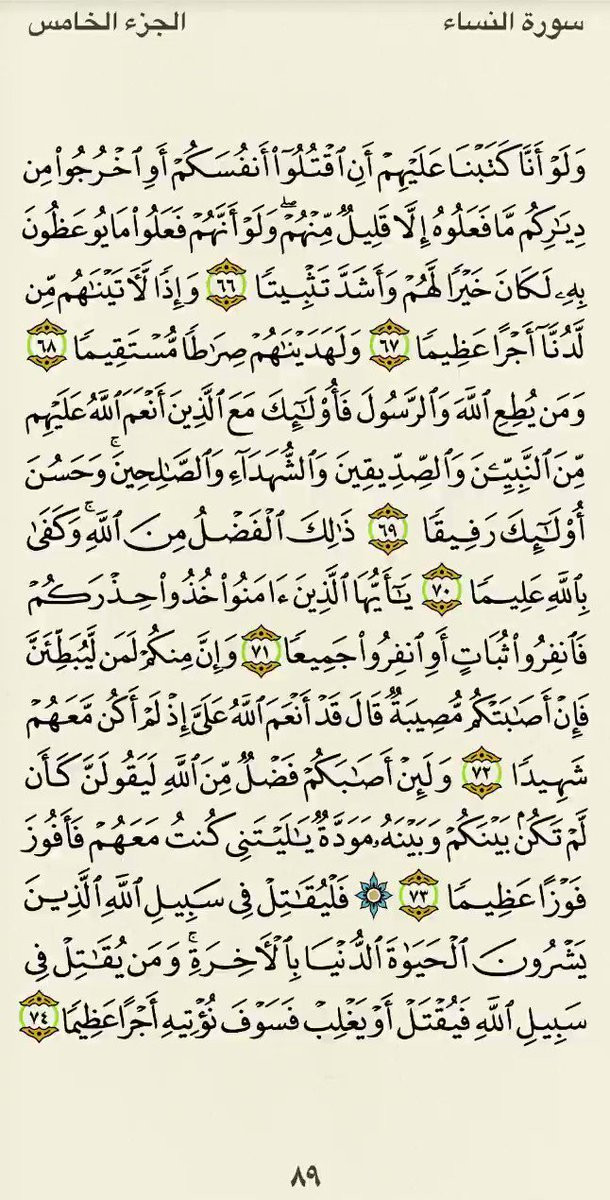 سورة النساء الجزء الخامس
وَلَوْ أَنَّا كَتَبْنَا عَلَيْهِمْ أَنِ ٱقْتُلُوٓا۟ أَنفُسَكُمْ أَوِ ٱخْرُجُوا۟ مِن
دِيَـٰرِكُم مَّا فَعَلُوهُ إِلَّا قَلِيلٌ مِّنْهُمْ ۖ وَلَوْ أَنَّهُمْ فَعَلُوا۟ مَا يُوعَظُونَ
بِهِۦ لَكَانَ خَيْرًا لَّهُمْ وَأَشَدَّ تَثْبِيتًا ٦٦ وَإِذًا لَّـَٔاتَيْنَـٰهُم مِّن
لَّدُنَّآ أَجْرًا عَظِيمًا ٦٧ وَلَهَدَيْنَـٰهُمْ صِرَٰطًا مُّسْتَقِيمًا ٦٨
وَمَن يُطِعِ ٱللَّهَ وَٱلرَّسُولَ فَأُو۟لَـٰٓئِكَ مَعَ ٱلَّذِينَ أَنْعَمَ ٱللَّهُ عَلَيْهِم
مِّنَ ٱلنَّبِيِّـۧنَ وَٱلصِّدِّيقِينَ وَٱلشُّهَدَآءِ وَٱلصَّـٰلِحِينَ ۚ وَحَسُنَ
أُو۟لَـٰٓئِكَ رَفِيقًا ٦٩ ذَٰلِكَ ٱلْفَضْلُ مِنَ ٱللَّهِ ۚ وَكَفَىٰ
بِٱللَّهِ عَلِيمًا ٧٠ يَـٰٓأَيُّهَا ٱلَّذِينَ ءَامَنُوا۟ خُذُوا۟ حِذْرَكُمْ
فَٱنفِرُوا۟ ثُبَاتٍ أَوِ ٱنفِرُوا۟ جَمِيعًا ٧١ وَإِنَّ مِنكُمْ لَمَن لَّيُبَطِّئَنَّ
فَإِنْ أَصَـٰبَتْكُم مُّصِيبَةٌ قَالَ قَدْ أَنْعَمَ ٱللَّهُ عَلَىَّ إِذْ لَمْ أَكُن مَّعَهُمْ
شَهِيدًا ٧٢ وَلَئِنْ أَصَـٰبَكُمْ فَضْلٌ مِّنَ ٱللَّهِ لَيَقُولَنَّ كَأَن
لَّمْ تَكُنۢ بَيْنَكُمْ وَبَيْنَهُۥ مَوَدَّةٌ يَـٰلَيْتَنِى كُنتُ مَعَهُمْ فَأَفُوزَ
فَوْزًا عَظِيمًا ٧٣ فَلْيُقَـٰتِلْ فِى سَبِيلِ ٱللَّهِ ٱلَّذِينَ
يَشْرُونَ ٱلْحَيَوٰةَ ٱلدُّنْيَا بِٱلْـَٔاخِرَةِ ۚ وَمَن يُقَـٰتِلْ فِى
سَبِيلِ ٱللَّهِ فَيُقْتَلْ أَوْ يَغْلِبْ فَسَوْفَ نُؤْتِيهِ أَجْرًا عَظِيمًا ٧٤
٨٩